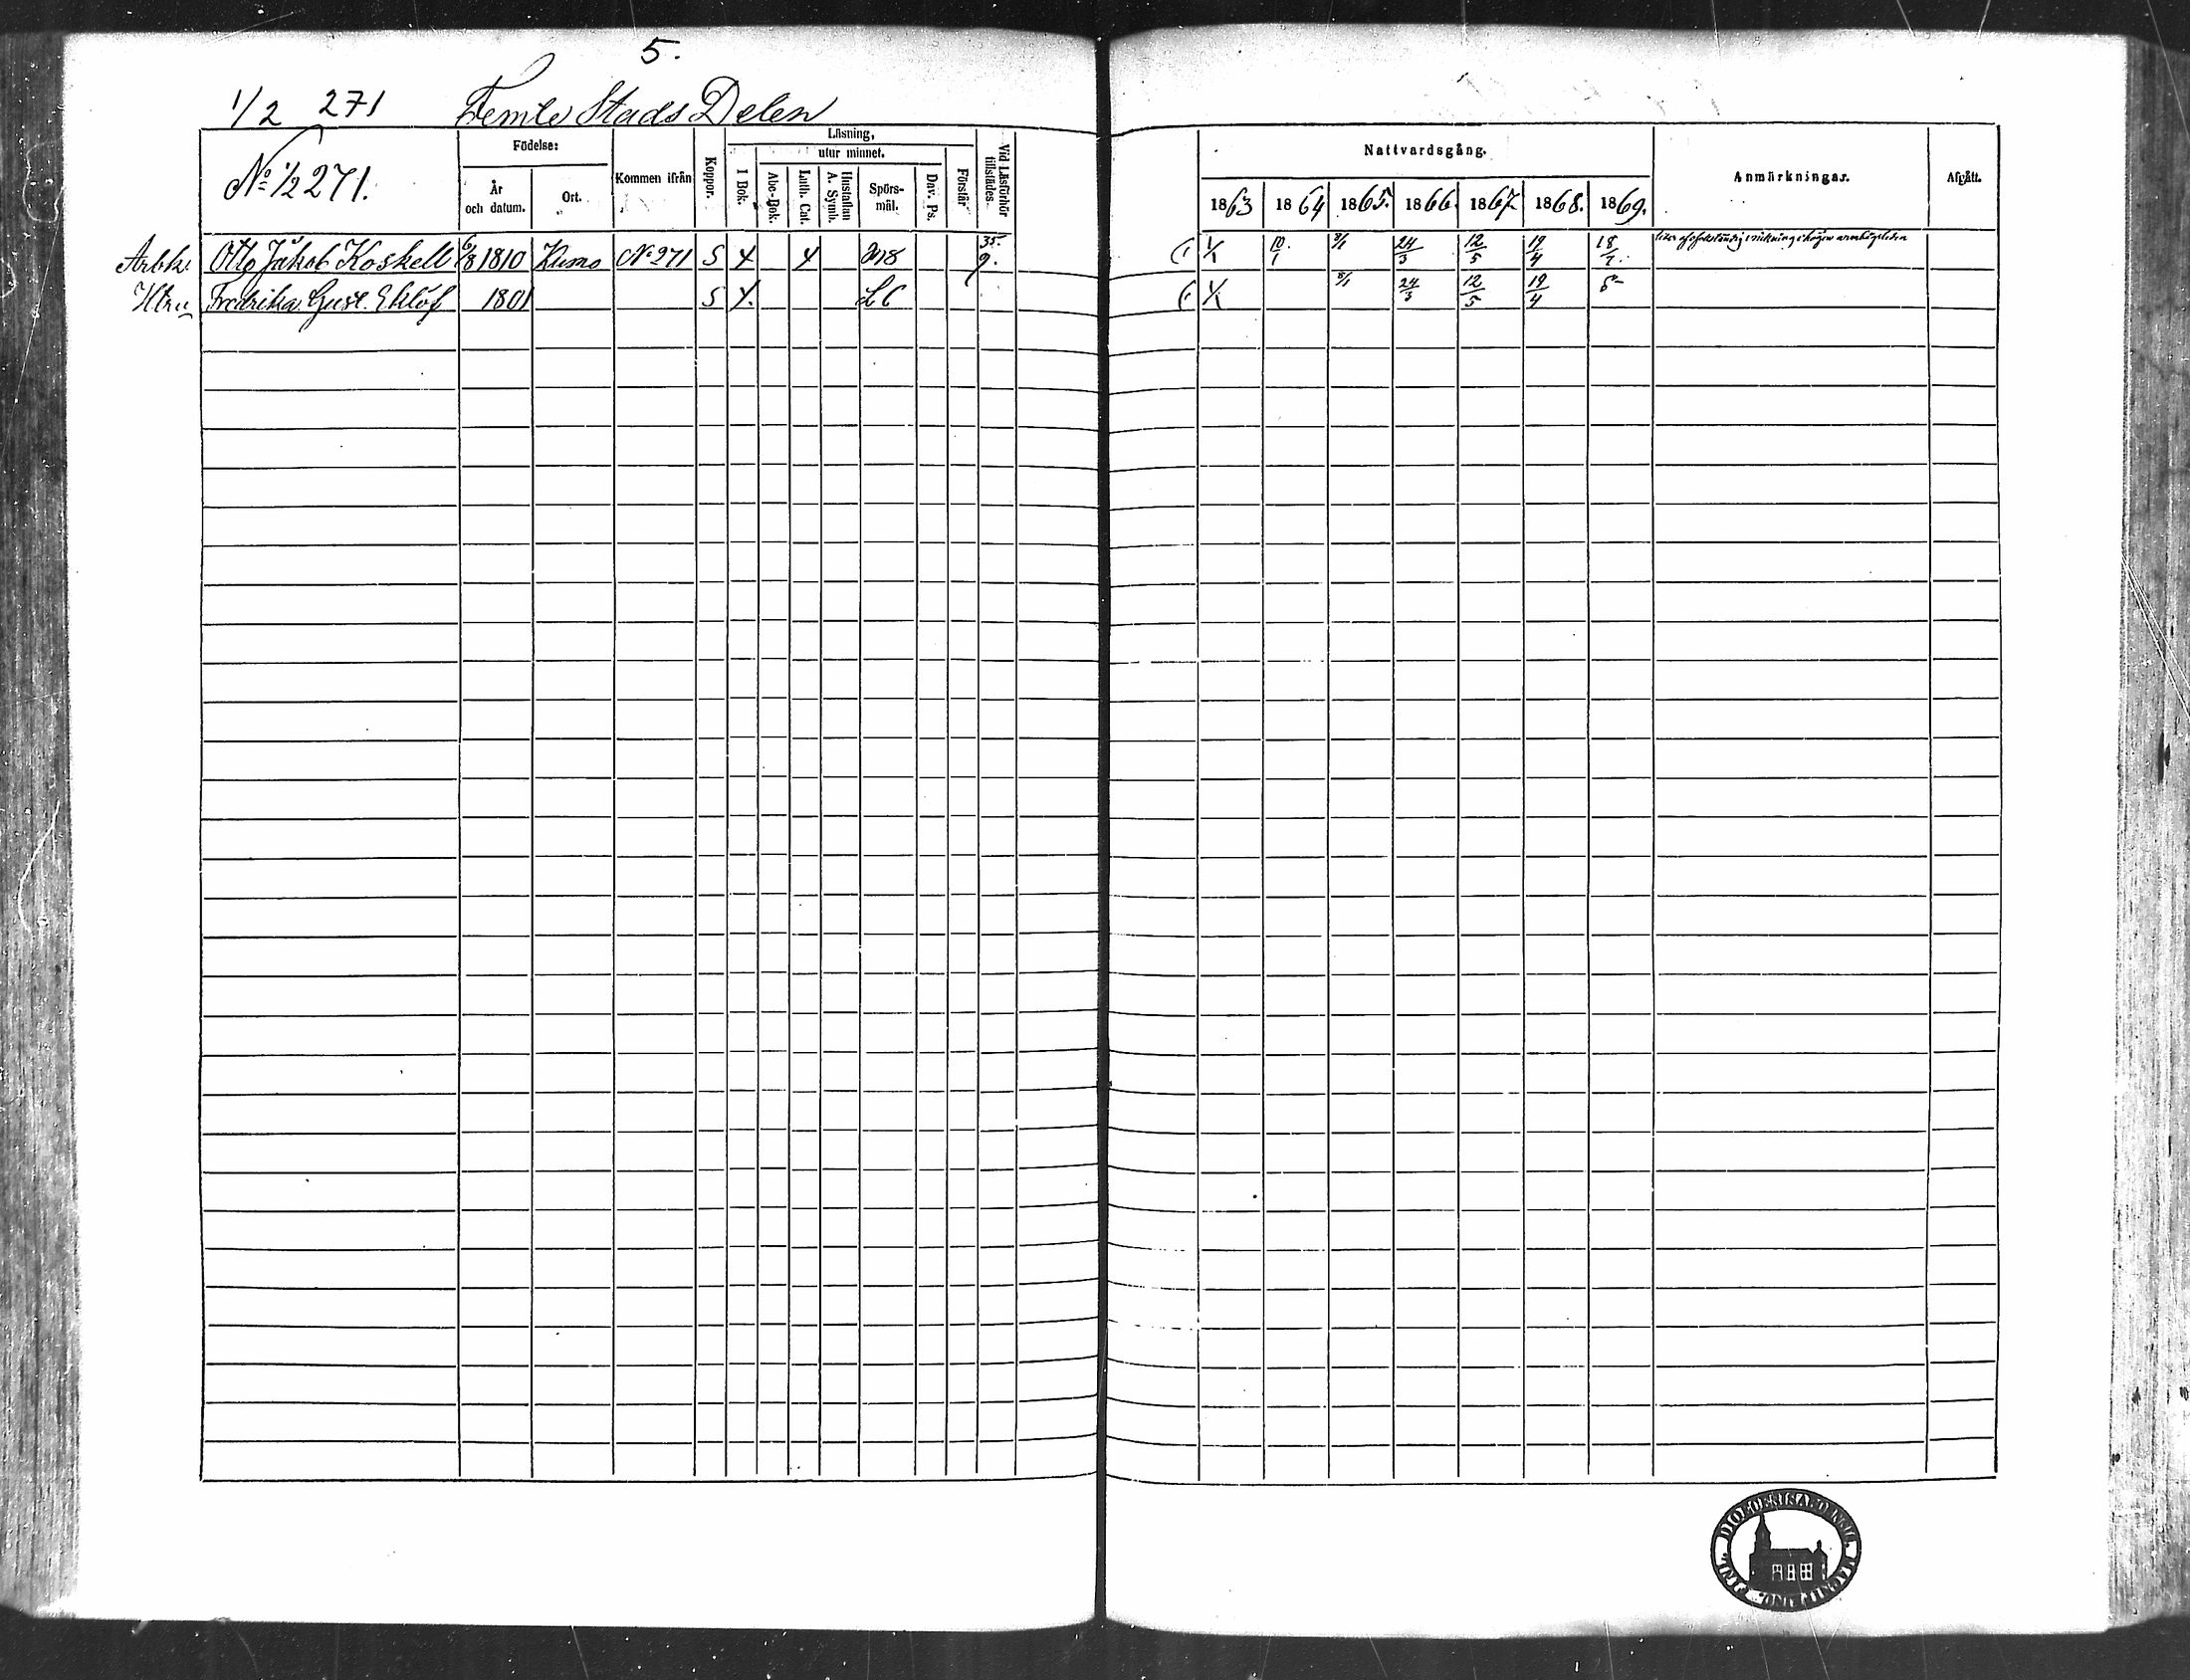 5.
1/2 271 Femte Stads Delen
No 1/2 271.
Födelse:
År och datum.
Ort.
Kommen ifrån
Koppor.
Läsning,
utur minnet.
I Bok.
Abc-Bok.
Luth. Cat.
Hustaflan A. Symb.
Spörs-mål.
Dav. Ps.
Förstår
Vid Läsförhör tillstädes.
Nattvardsgång.
1863 1864 1865. 1866. 1867 1868. 1869.
Anmärkningar.
Afgått.
Arbk. Otto Jakob Koskell 6/8 1810 Kumo No 271 S 35. 9. 1/1 10/1 8/1 24/3 12/5 19/4 18/7.
Htru Fredrika Gust. Eklöf 1801 S 1/1 8/1 24/3 12/5 19/4